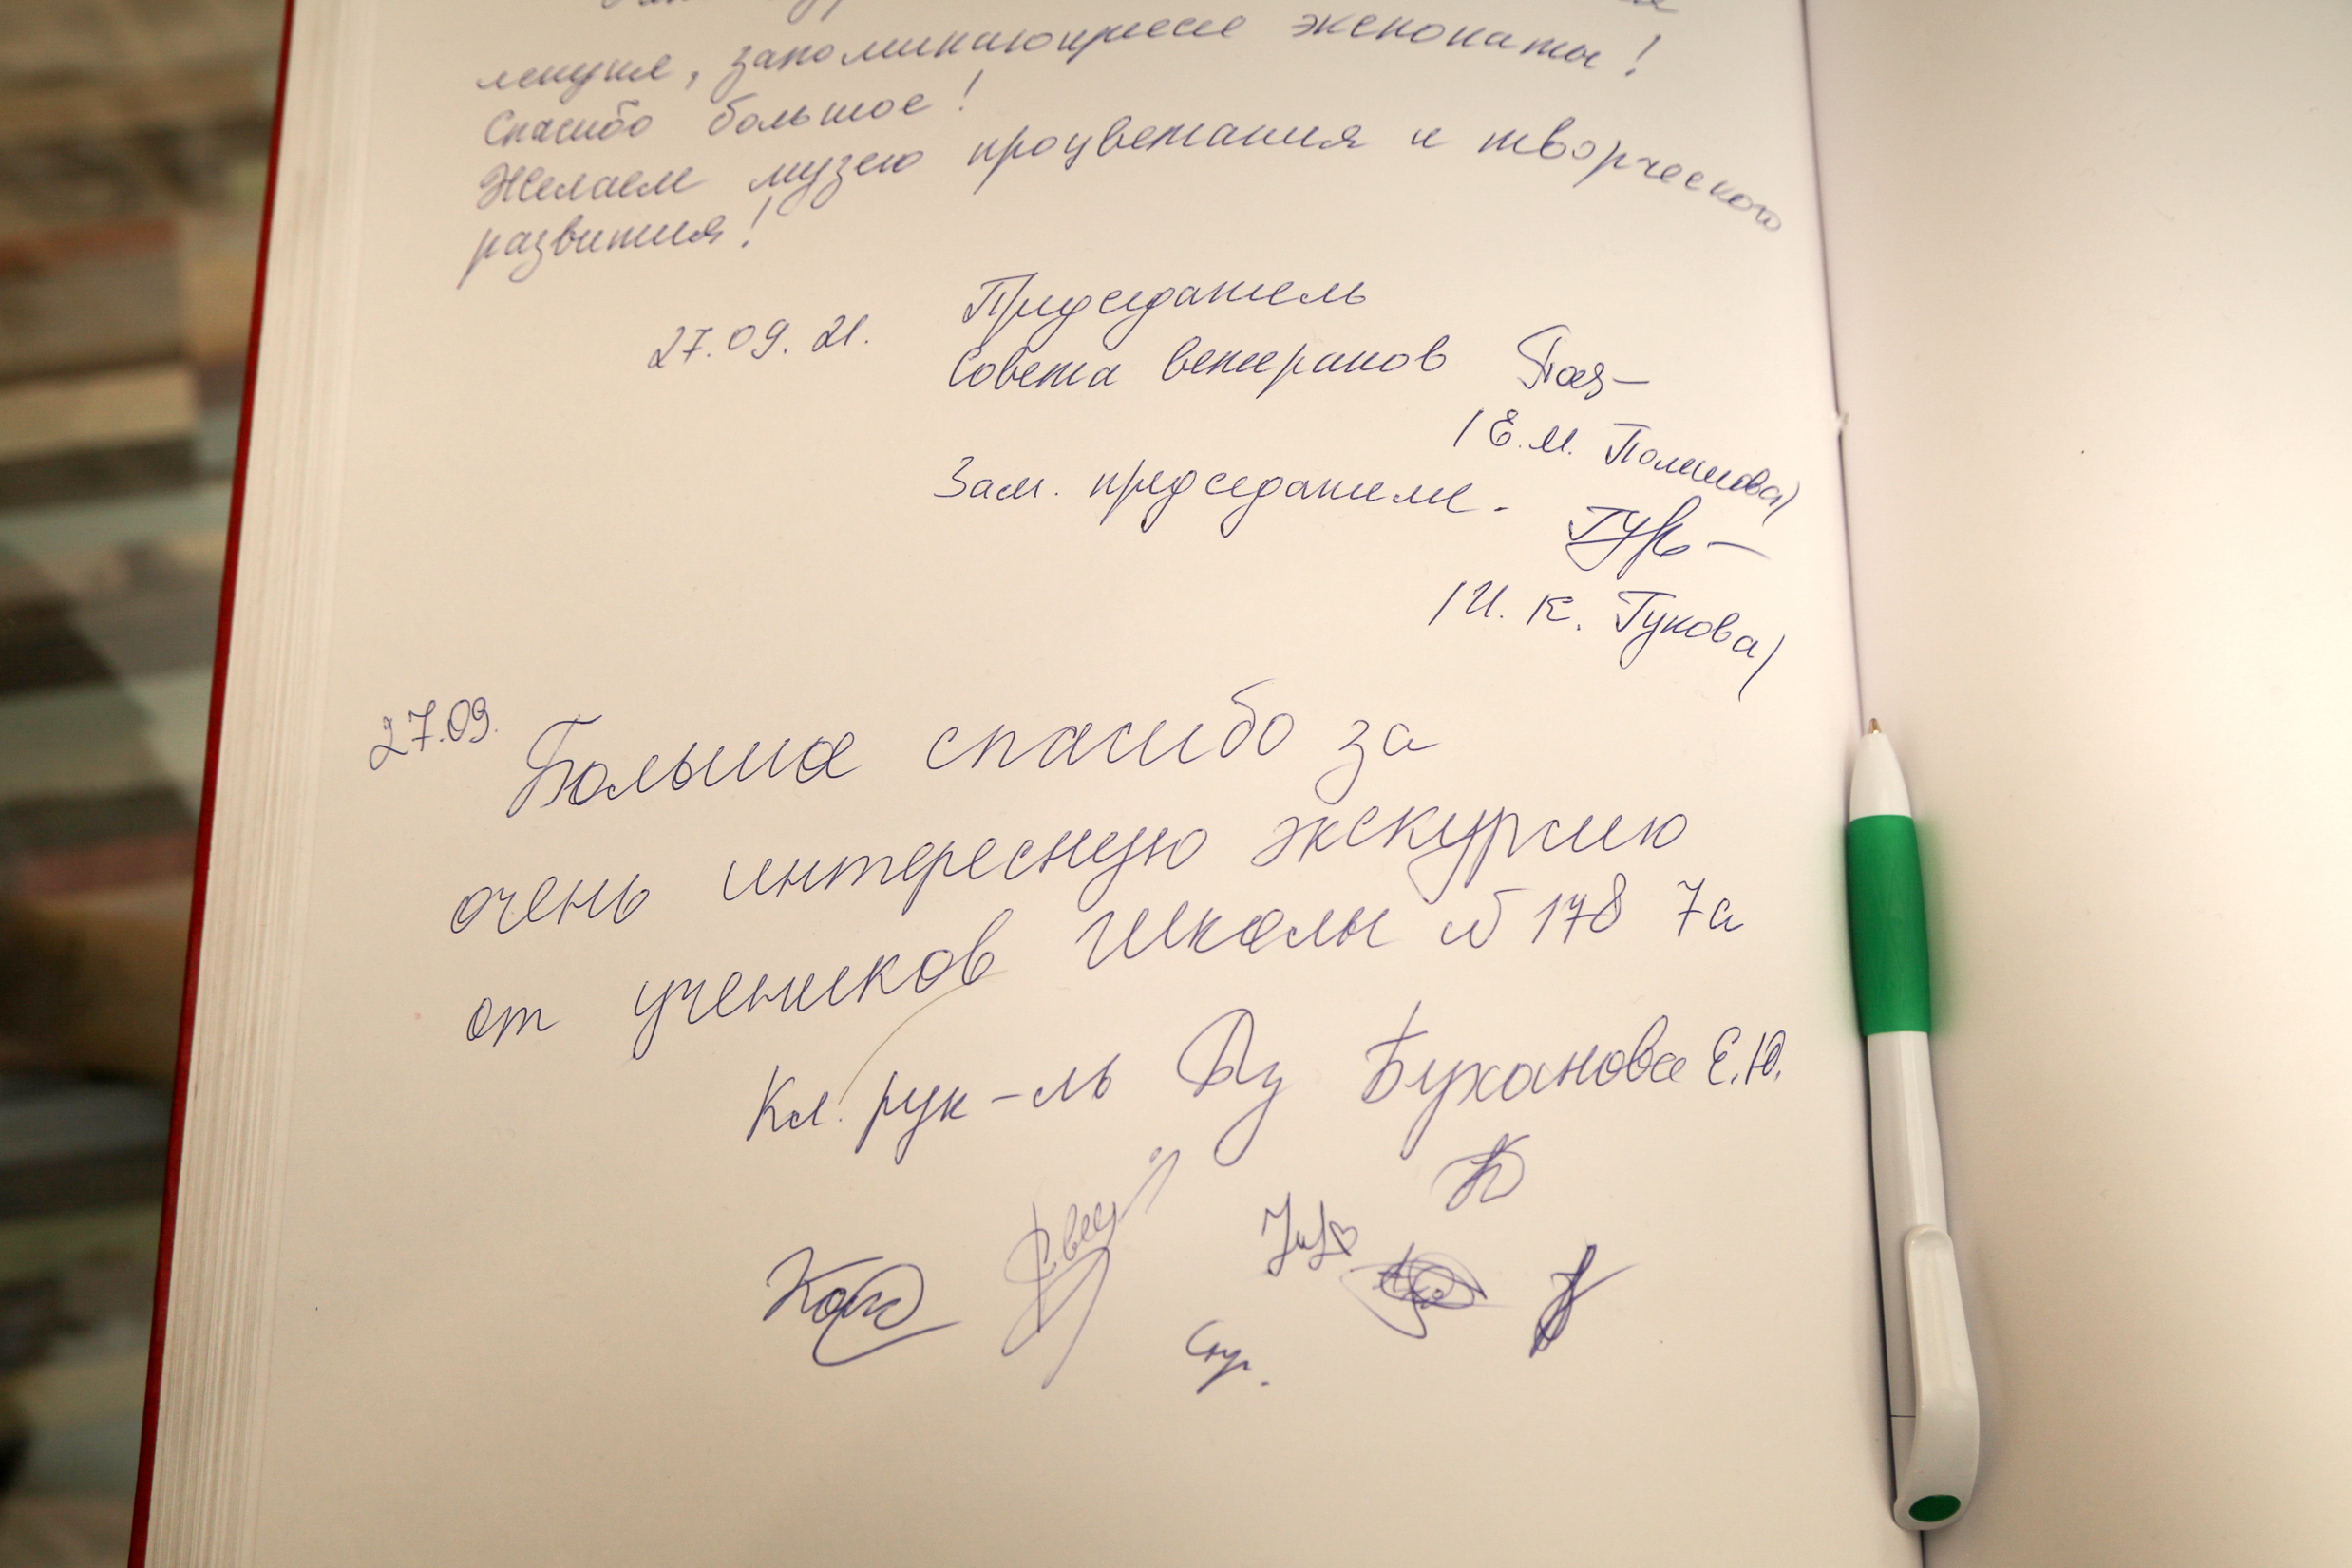 лекция, запоминающиеся экспонаты!
Спасибо большое!
Желаем музею процветания и творческого
развития!
27.09.21. Председатель
Совета ветеранов
/Е.М.
Зам. председателя.
/И. К. Гукова/
27.09. Больша спасибо за
очень интересную экскурсию
от учеников Школы № 178 7а
Кл. рук-ль Буханова Е.Ю.